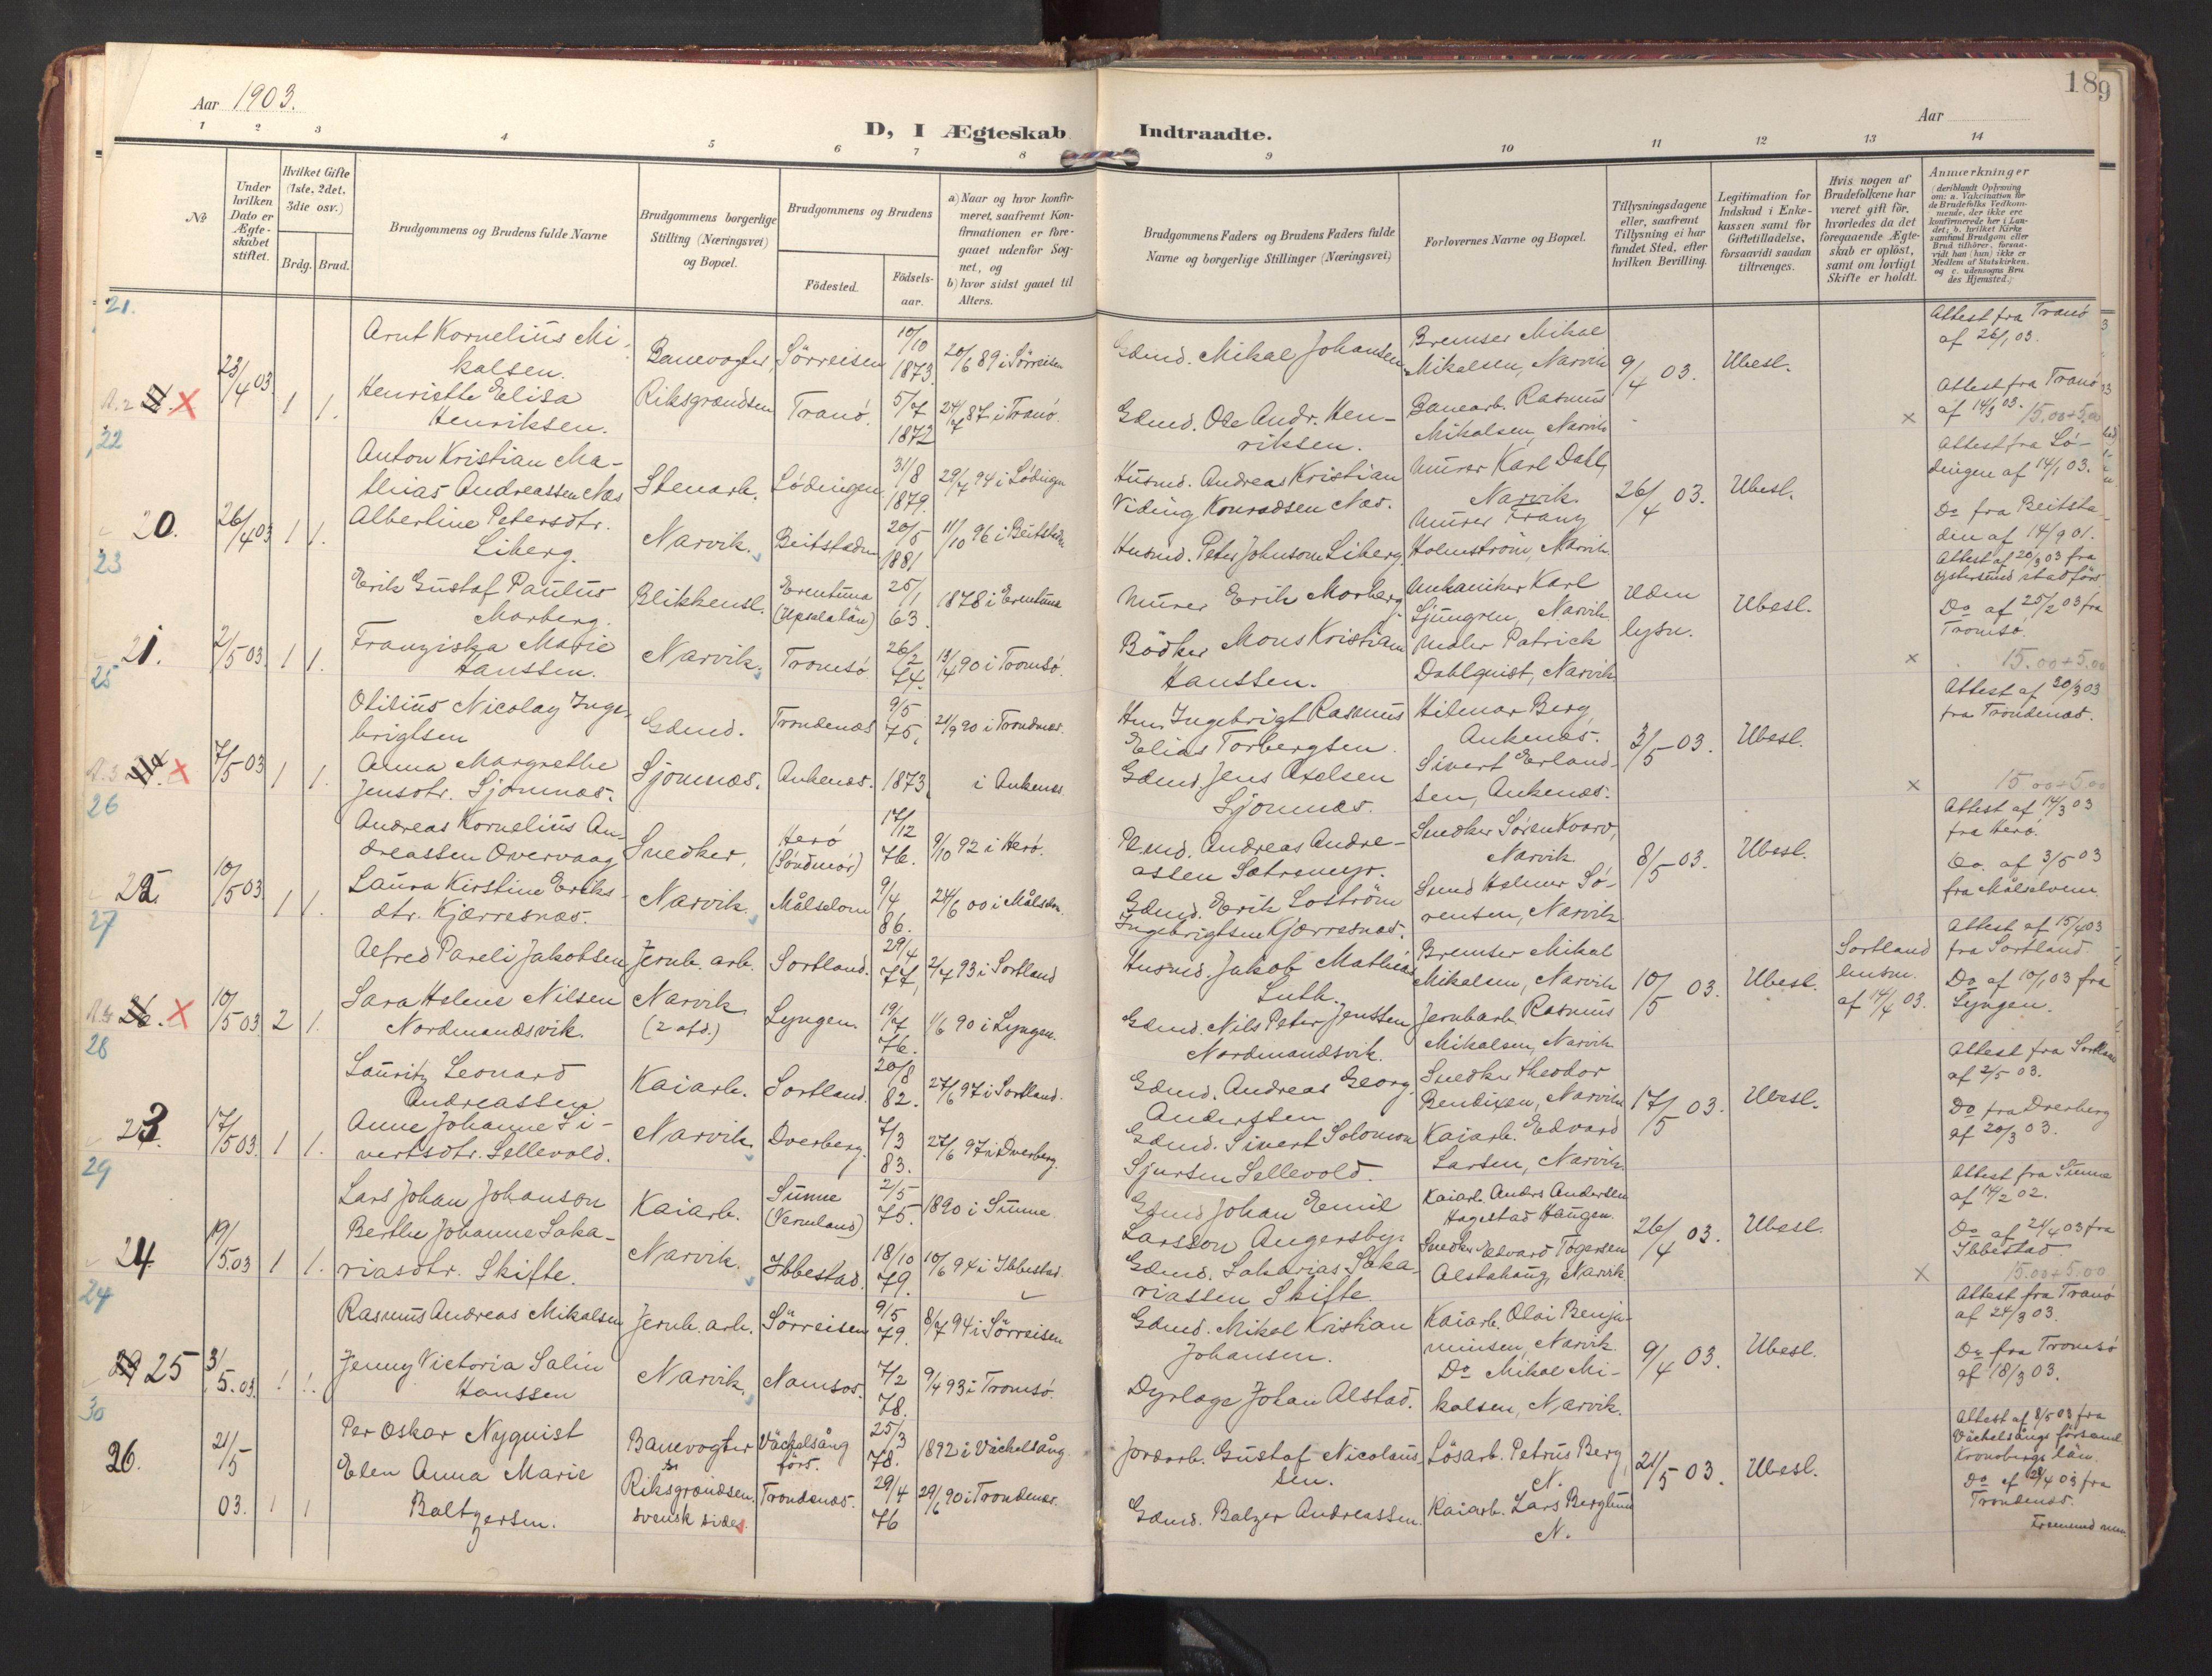 Aar 1903.
D, I Ægteskab Indtraadte.
Aar
189
1 2 3 4 5 6 7 8 9 10 11 12 13 14
No
Under hvilken Dato er Ægteskabet stiftet.
Hvilket Gifte (1ste, 2det, 3die osv.)
Brdg. Brud.
Brudgommens og Brudens fulde Navne
Brudgommens borgerlige Stilling (Næringsvei) og Bopæl.
Brudgommens og Brudens
Födested.
Födsels-aar.
a) Naar og hvor konfirmeret, saafremt Konfirmationen er foregaaet udenfor Sognet, og
b) hvor sidst gaaet til Alters.
Brudgommens Faders og Brudens Faders fulde Navne og borgerlige Stillinger (Næringsvei)
Forlovernes Navne og Bopæl.
Tillysningsdagene eller, saafremt Tillysning ei har fundet Sted, efter hvilken Bevilling.
Legitimation for Indskud i Enkekassen samt for Giftetilladelse, forsaavidt saadan tiltrænges.
Hvis nogen af Brudefolkene har været gift för, hvorledes da det foregaaende Ægteskab er oplöst, samt om lovligt Skifte er holdt.
Anmærkninger
(deriblandt Oplysning om: a. Vakcination for de Brudefolks Vedkommende, der ikke ere konfirmerede her i Landet; b. hvilket Kirkesamfund Brudgom eller Brud tilhörer, forsaavidt han (hun) ikke er Medlem af Statskirken, og c. udensogns Brudes Hjemsted.)
21.
23/4 03 1 1.
Arnt Kornelius Mikalsen.
Banevogter, Sörreisen 10/10 1873. 20/6 89 i Sörreisen
Gdmd. Mikal Johansen
Bremser Mikal Mikalsen, Narvik
9/4 03. Ubesl.
Attest fra Tranö af 26/1 03.
Henriette Elisa Henriksen.
Riksgrændsen Tranö. 5/7 1872 24/7 87 i Tranö.
Gdmd. Ole Andr. Henriksen.
Banearb. Rasmus Mikalsen, Narvik
Attest fra Tranö af 14/3 03. 15.00+5.00
22
20. 26/4 03 1 1.
Anton Kristian Mathias Andreassen Næs
Stenarb. Lödingen 31/8 1879. 29/7 94 i Lödingen
Husmd. Andreas Kristian Viding Konradsen Næs.
Murer Karl Dahl, Narvik.
26/4 03. Ubesl.
Attest fra Lödingen af 14/1 03.
Albertine Petersdtr. Liberg.
Narvik. Beitstaden 20/5 1881 11/10 96 i Beitstaden
Husmd. Peter Johnsen Liberg.
Murer Franz Holmström, Narvik.
Do fra Beitstaden af 14/9 01.
23
21. 2/5 03 1 1.
Erik Gustaf Paulus Morberg.
Blikkensl. Erentuna (Upsala län) 25/1 63. 1878 i Erentuna
Murer Erik Morberg.
Mekaniker Karl Ljungren, Narvik
Uden lysn. Ubesl.
Attest af 20/3 03 fra Östersund stadförs
Franziska Marie Hanssen.
Narvik. Tromsö 26/2 74. 13/4 90 i Tromsö.
Bödker Mons Kristian Hanssen.
Maler Patrick Dahlquist, Narvik.
Do af 25/2 03 fra Tromsö.
15.00+5.00
25
7/5 03 1 1.
Otilius Nicolay Ingebrigtsen
Gdmd. Trondenæs 9/5 75. 21/9 90 i Trondenæs.
Hm. Ingebrigt Rasmus Elias Torbergsen.
Hilmar Berg, Ankenæs.
3/5 03. Ubesl.
Attest af 30/3 03 fra Trondenæs.
Anna Margrethe Jensdtr. Sjomnæs.
Sjomnæs. Ankenæs. 1873. i Ankenæs
Gdmd. Jens Axelsen Sjomnæs.
Sivert Erlandsen, Ankenæs.
15.00+5.00
26
22. 10/5 03 1 1.
Andreas Kornelius Andreassen Overvaag
Snedker, Herö (Söndmör) 17/12 76. 9/10 92 i Herö.
Andreas Andreassen Sætremyr.
Snedker Sören Kvarv, Narvik.
8/5 03. Ubesl.
Attest af 14/3 03 fra Herö.
Laura Kirstine Eriksdtr. Kjærresnæs.
Narvik. Målselven 9/4 86. 24/6 00 i Målselv.
Gdmd. Erik Loström Ingebrigtsen Kjærresnæs.
Smed Helmer Sörensen, Narvik.
Do. af 3/5 03 fra Målselven.
27
10/5 03 2 1.
Alfred Pareli Jakobsen
Jernb. arb. Sortland. 29/4 77. 2/7 93 i Sortland
Husmd. Jakob Mathias Luth.
Bremser Mikal Mikalsen, Narvik
10/5 03. Ubesl.
Sortland af 14/4 03.
Attest af 15/4 03 fra Sortland.
Sara Helene Nilsen Nordmandsvik.
Narvik (2 afd.) Lyngen. 19/7 76. 1/6 90 i Lyngen.
Gdmd. Nils Peter Jenssen Nordmandsvik.
Jernbarb. Rasmus Mikalsen, Narvik
Do af 10/1 03 fra Lyngen.
28
23. 17/5 03. 1 1.
Lauritz Leonard Andreassen
Kaiarb. Sortland. 20/8 82. 27/6 97 i Sortland.
Gdmd. Andreas Georg Anderssen
Snedker Theodor Bendixen, Narvik
17/5 03. Ubesl.
Attest fra Sortland af 2/5 03.
Anne Johanne Sivertsdtr. Sellevold.
Narvik. Dverberg. 7/3 83. 27/6 97 i Dverberg.
Gdmd. Sivert Solomon Sjursen Sellevold.
Kaiarb. Edvard Larsen, Narvik.
Do fra Dverberg af 20/3 03.
29
24 19/5 03 1 1.
Lars Johan Johanson
Kaiarb. Sunne (Vermland) 2/5 75. 1890 i Sunne
Gdmd Johan Emil Larsson Angersby.
Kaiarb. Anders Andersen Hagestad Haugen.
26/4 03. Ubesl.
Attest fra Sunne af 14/2 02.
Berthe Johanne Sakariasdtr. Skifte.
Narvik. Ibbestad. 18/10 79. 10/6 94 i Ibbestad.
Gdmd. Sakarias Sakariassen Skifte.
Snedker Edvard Togersen Alstahaug, Narvik.
Do af 21/4 03 fra Ibbestad.
15.00+5.00
24
25 3/5 03. 1 1.
Rasmus Andreas Mikalsen
Jernb. arb. Sörreisen 9/5 79. 8/7 94 i Sörreisen
Gdmd. Mikal Kristian Johansen.
Kaiarb. Olai Benjaminsen, Narvik.
9/4 03. Ubesl.
Attest fra Tranö af 24/3 03.
Jenny Victoria Salin Hanssen
Narvik. Namsos. 7/2 78. 9/4 93 i Tromsö.
Dyrlæge Johan Alstad.
Do Mikal Mikalsen, Narvik.
Do fra Tromsö af 18/3 03.
30
26. 21/5 03. 1 1
Per Oskar Nyquist
Banevogter Väckelsång förs. 25/3 78. 1892 i Väckelsång.
Jordarb. Gustaf Nicolaussen.
Lösarb. Petrus Berg, N.
21/5 03. Ubesl.
Attest af 8/5 03 fra Väckelsångs församl. Kronobergs län.
Elen Anna Marie Baltzersen.
Riksgrændsen. svensk side. Trondenæs. 29/4 76 29/6 90 i Trondenæs.
Gdmd. Balzer Andreassen.
Kaiarb. Lars Berglund N.
Do af 29/4 03 fra Trondenæs.